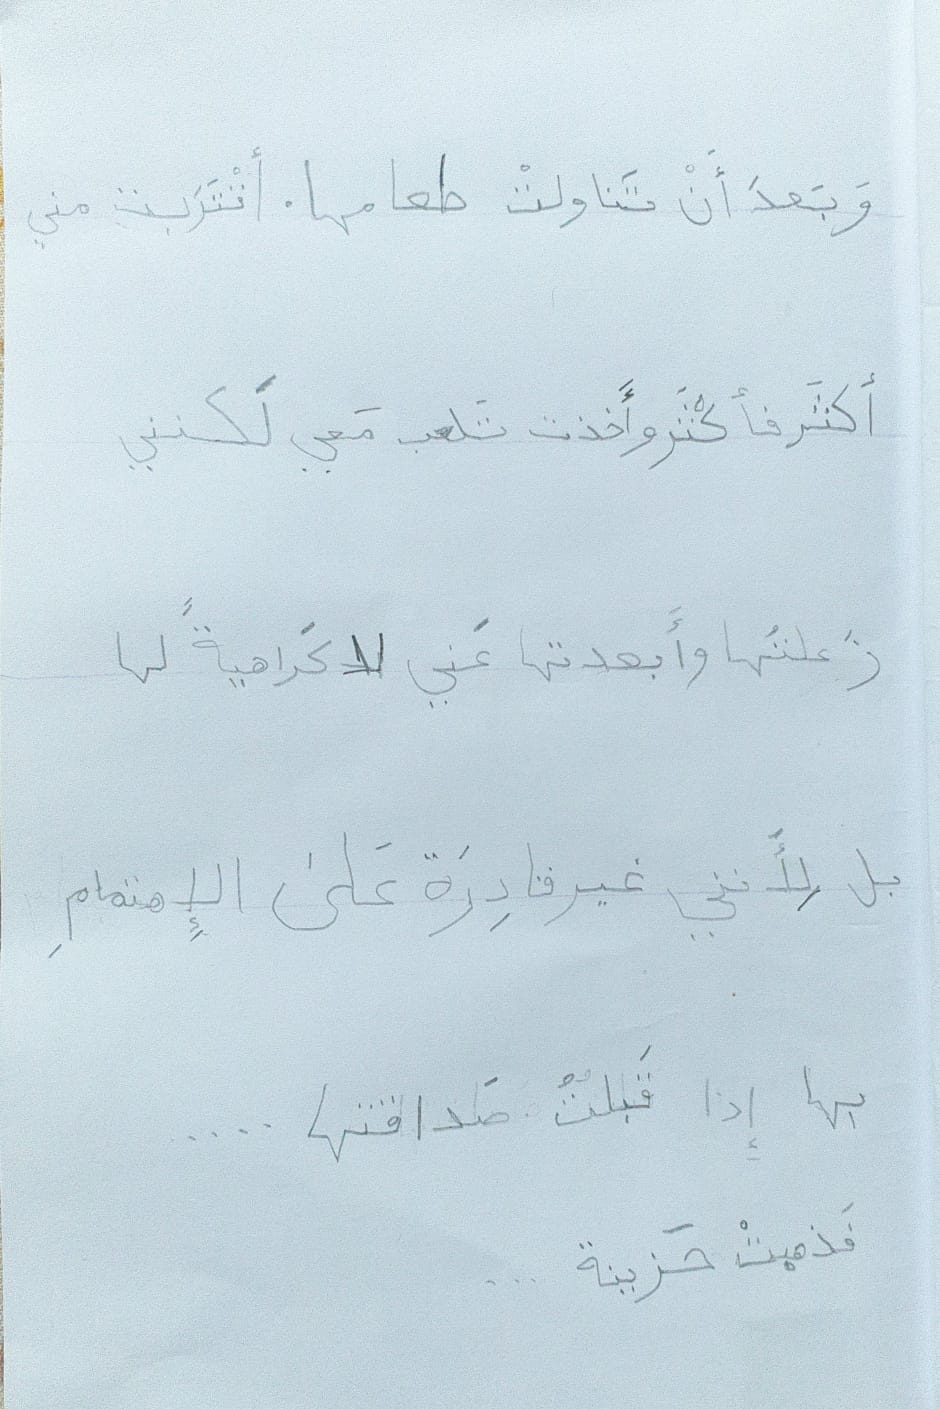 وَبَعدَ أَنْ تَناولتْ طعامها. أقْتَرَبت مني
أكثَر فأكْثَر وأَخذت تَلعب مَعي لَكنني
زَعلتُها وأَبعدتها عَني لا كَراهيةً لها
بل لِأَنني غير قادِرَة عَلىٰ الإِهتمامِ
بها إِذا قَبلتُ صَداقتها .....
فَذهبتْ حَزينة ...